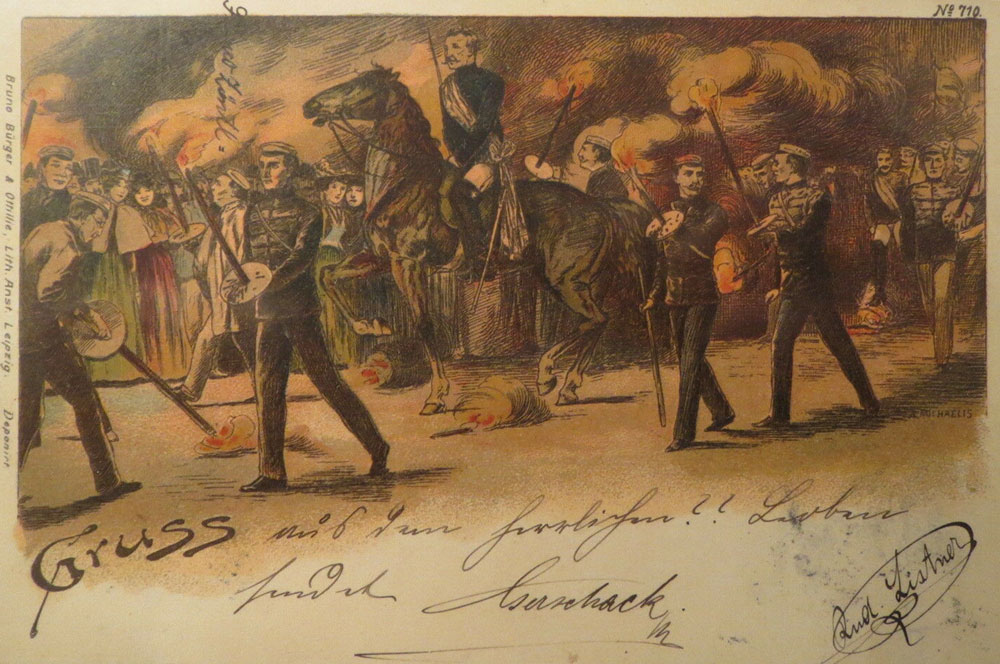 No 710.
Bruno Bürger & Ottilie, Lith. Anst. Leipzig. Deponirt
MICHAELIS
Gruss aus dem herrlichen!! Leoben
sendet
Rud Listner